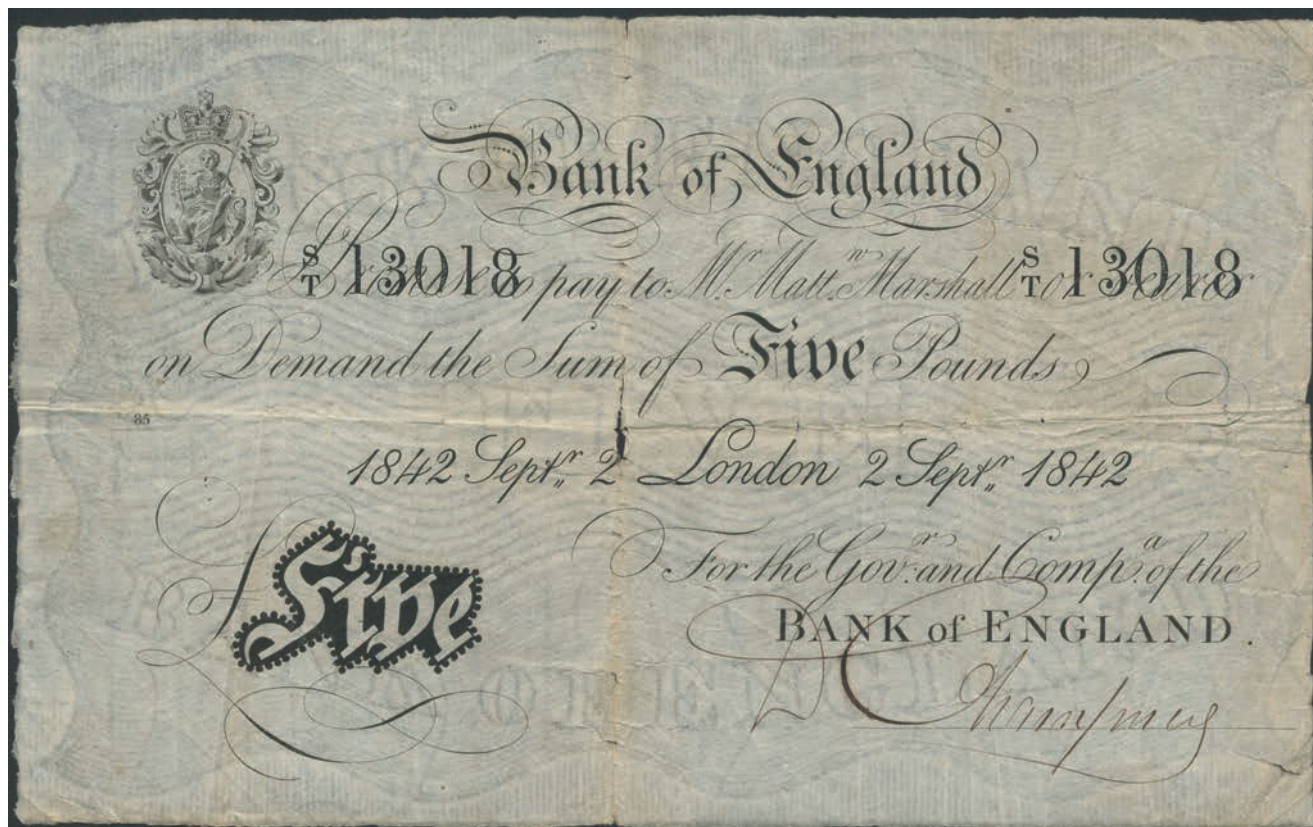 Bank of England
S/T 13018 I Promise to pay to Mr. Mattw. Marshall or bearer S/T 13018
on Demand the Sum of Five Pounds
85
1842 Septr. 2 London 2 Septr. 1842
For the Govr. and Compa. of the
BANK of ENGLAND.
£Five